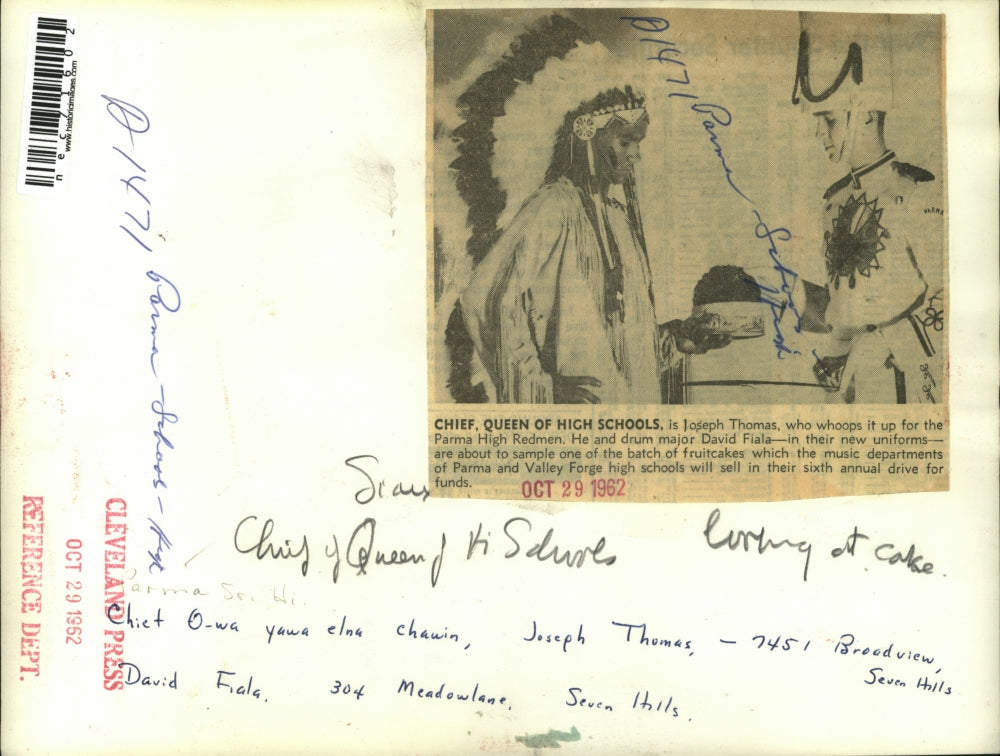 CHIEF, QUEEN OF HIGH SCHOOLS, is Joseph Thomas, who whoops it up for the
Parma High Redmen. He and drum major David Fiala—in their new uniforms—
are about to sample one of the batch of fruitcakes which the music departments
of Parma and Valley Forge high schools will sell in their sixth annual drive for
funds.
OCT 29 1962
D1471 Parma - Schools - High
necz71602
www.historicimages.com
D1471 Parma - Schools - High
CLEVELAND PRESS
OCT 29 1962
REFERENCE DEPT.
Sioux
Chief of Queen of Hi Schools looking at cake.
Parma Sr. Hi.
Chief O-wa yawa elna chawin, Joseph Thomas, - 7451 Broadview,
Seven Hills
David Fiala, 304 Meadowlane, Seven Hills.